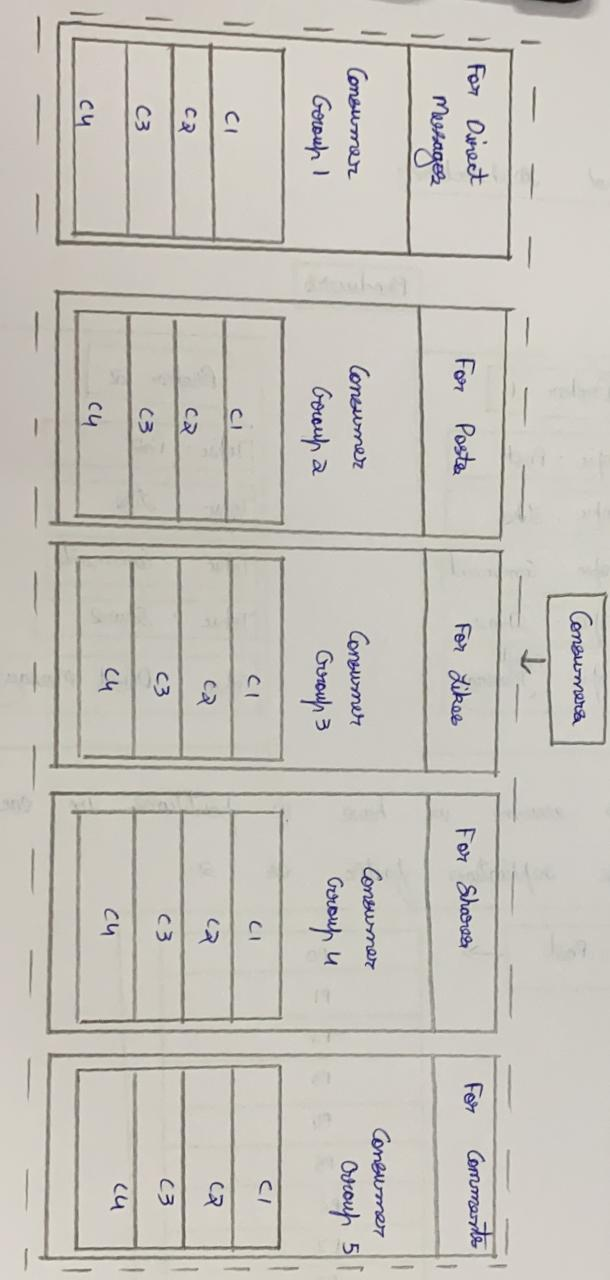 Consumers
For Direct
Messages
Consumer
Group 1
C1
C2
C3
C4
For Posts
Consumer
Group 2
C1
C2
C3
C4
For Likes
Consumer
Group 3
C1
C2
C3
C4
For Shares
Consumer
Group 4
C1
C2
C3
C4
For Comments
Consumer
Group 5
C1
C2
C3
C4